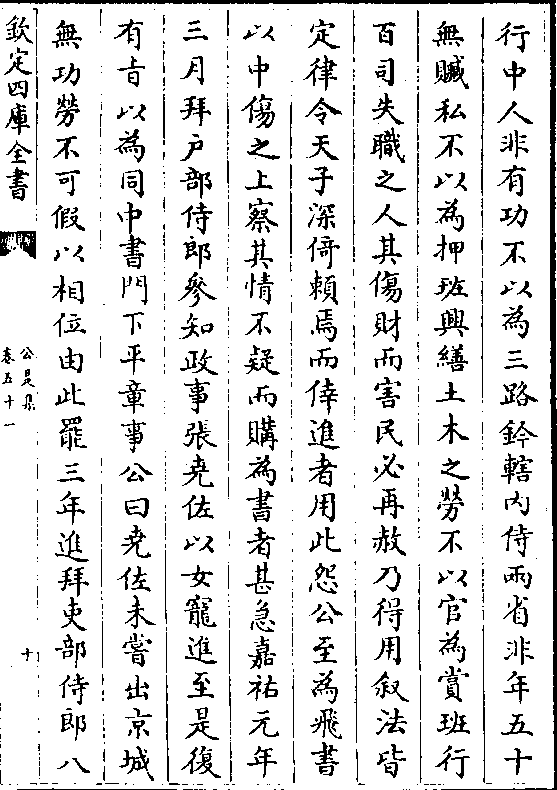 行中人非有功不以為三路鈐轄内侍兩省非年五十
無贓私不以為押班興繕土木之勞不以官為賞班行
百司失職之人其傷財而害民必再赦乃得用叙法皆
定律令天子深倚頼焉而倖進者用此怨公至為飛書
以中傷之上察其情不疑而購為書者甚急嘉祐元年
三月拜戸部侍郎參知政事張尭佐以女寵進至是復
有㫖以為同中書門下平章事公曰尭佐未嘗出京城
無功勞不可假以相位由此罷三年進拜吏部侍郎八
欽定四庫全書
公是集
卷五十一
十